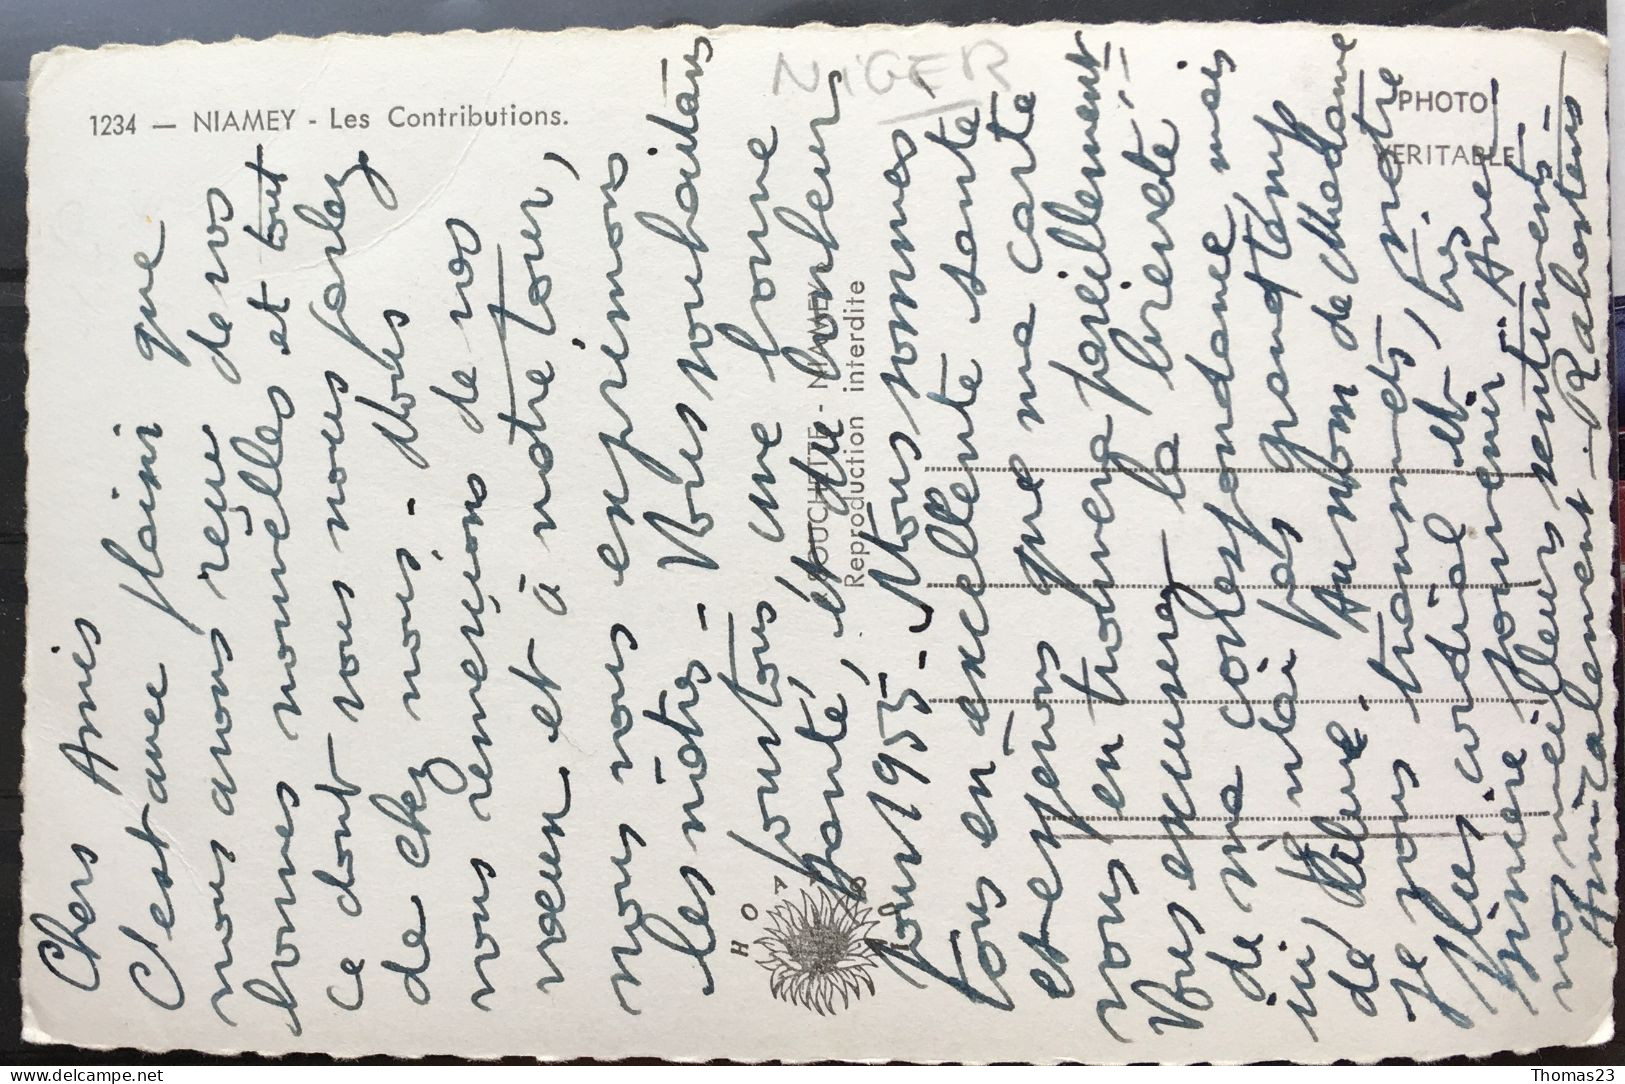 1234 — NIAMEY - Les Contributions.
NIGER
PHOTO
VERITABLE
SOUCHETTE - NIAMEY
Reproduction interdite
HOA
Chers Amis
C'est avec plaisir que
nous avons reçu de vos
bonnes nouvelles et tout
ce dont vous nous parlez
de chez nous. - Nous
vous remercions de vos
vœux et à notre tour,
nous nous exprimons
les nôtres - Vous souhaitans
pour tous, une bonne
santé, et du bonheur
pour 1955 - Nous sommes
tous en excellente santé
et espérons que ma carte
vous en trouvera pareillement -
Vous excuserez la brièveté
de ma correspondance mais
ici, je n'ai pas grand temps
de libre. Au nom de Madame
je vous transmets, notre
plus cordial et, très
sincère souvenir Avec
nos meilleurs sentiments -
Amicalement.
Thomas23
delcampe.net